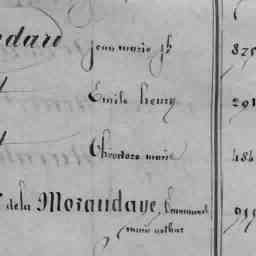 edard Jean marie jh 875
t Emile henry 291
t Theodore marie 484
de la Morandaye, Emmanuel 919
marie arthur